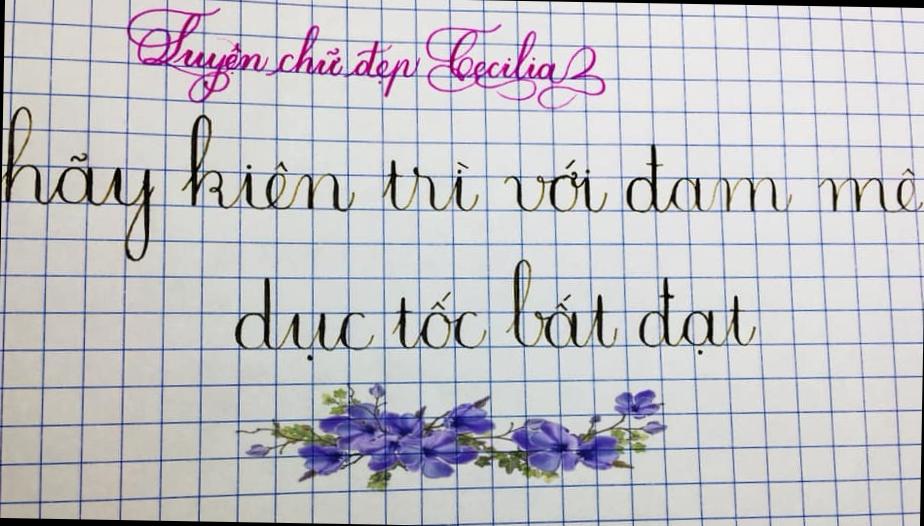 Luyện chữ đẹp Cecilia
hãy kiên trì với đam mê
dục tốc bất đạt